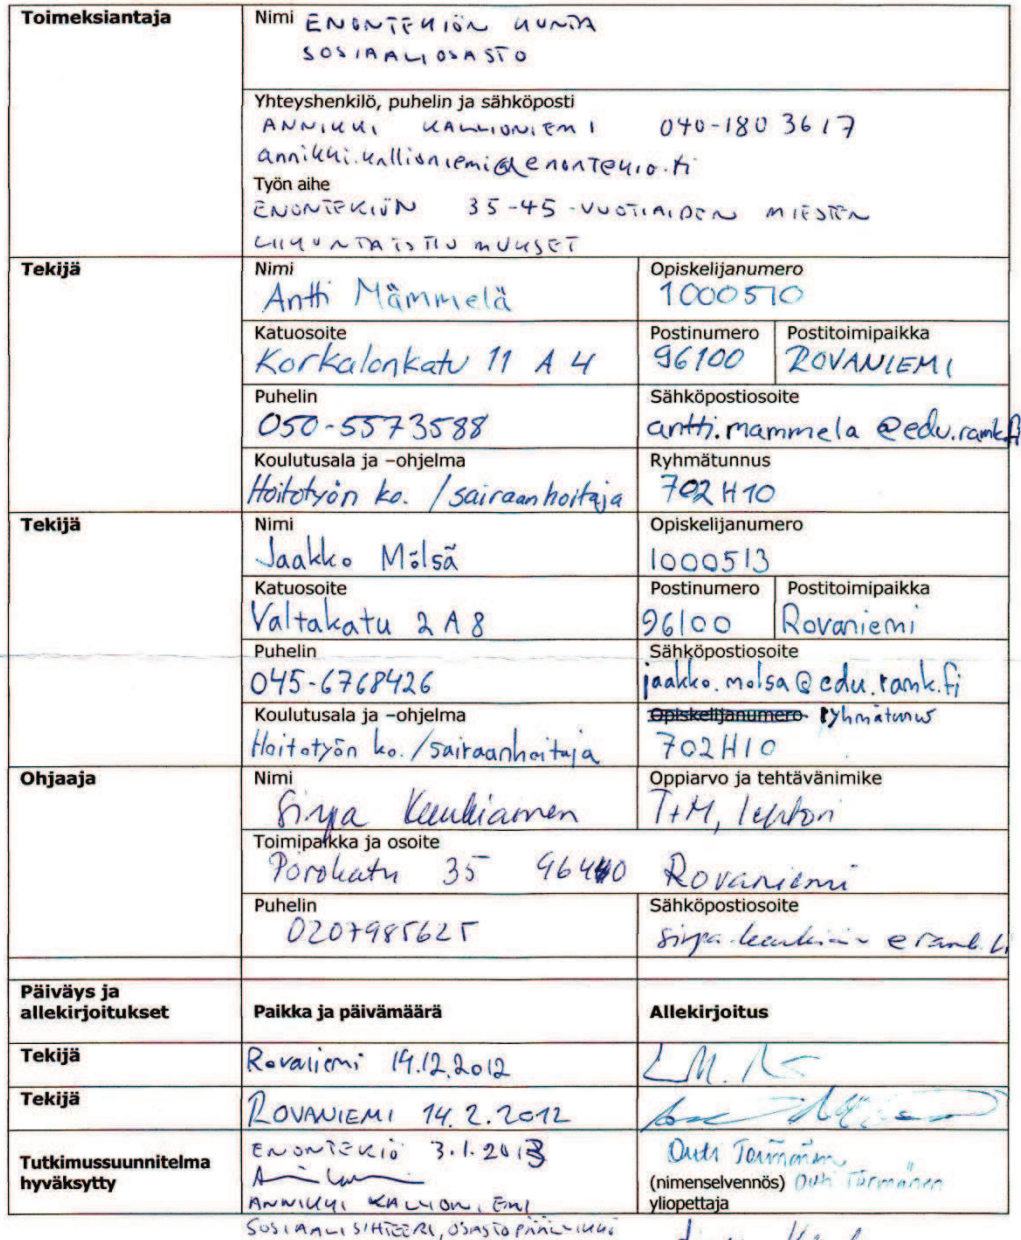 Toimeksiantaja
Nimi ENONTEKIÖN KUNTA
SOSIAALIOSASTO
Yhteyshenkilö, puhelin ja sähköposti
ANNIKKI KALLIONIEMI 040-180 3617
annikki.kallioniemi@enontekio.fi
Työn aihe
ENONTEKIÖN 35-45-VUOTIAIDEN MIESTEN
LIIKUNTATOTTUMUKSET
Tekijä
Nimi
Antti Mämmelä
Opiskelijanumero
1000510
Katuosoite
Korkalonkatu 11 A 4
Postinumero
96100
Postitoimipaikka
ROVANIEMI
Puhelin
050-5573588
Sähköpostiosoite
antti.mammela@edu.ramk.fi
Koulutusala ja –ohjelma
Hoitotyön ko. / sairaanhoitaja
Ryhmätunnus
702H10
Tekijä
Nimi
Jaakko Mölsä
Opiskelijanumero
1000513
Katuosoite
Valtakatu 2 A 8
Postinumero
96100
Postitoimipaikka
Rovaniemi
Puhelin
045-6768426
Sähköpostiosoite
jaakko.molsa@edu.ramk.fi
Koulutusala ja –ohjelma
Hoitotyön ko./sairaanhoitaja
Opiskelijanumero ryhmätunnus
702H10
Ohjaaja
Nimi
Sirpa
Oppiarvo ja tehtävänimike
TtM, lehtori
Toimipaikka ja osoite
Porokatu 35 Rovaniemi
Puhelin
0207985625
Sähköpostiosoite
Päiväys ja
allekirjoitukset
Paikka ja päivämäärä
Allekirjoitus
Tekijä
Rovaniemi 14.12.2012
Tekijä
ROVANIEMI 14.2.2012
Tutkimussuunnitelma
hyväksytty
ENONTEKIÖ 3.1.2013
ANNIKKI KALLIONIEMI
SOSIAALISIHTEERI, OSASTOPÄÄLLIKKÖ
Outi Törmänen
(nimenselvennös) Outi Törmänen
yliopettaja